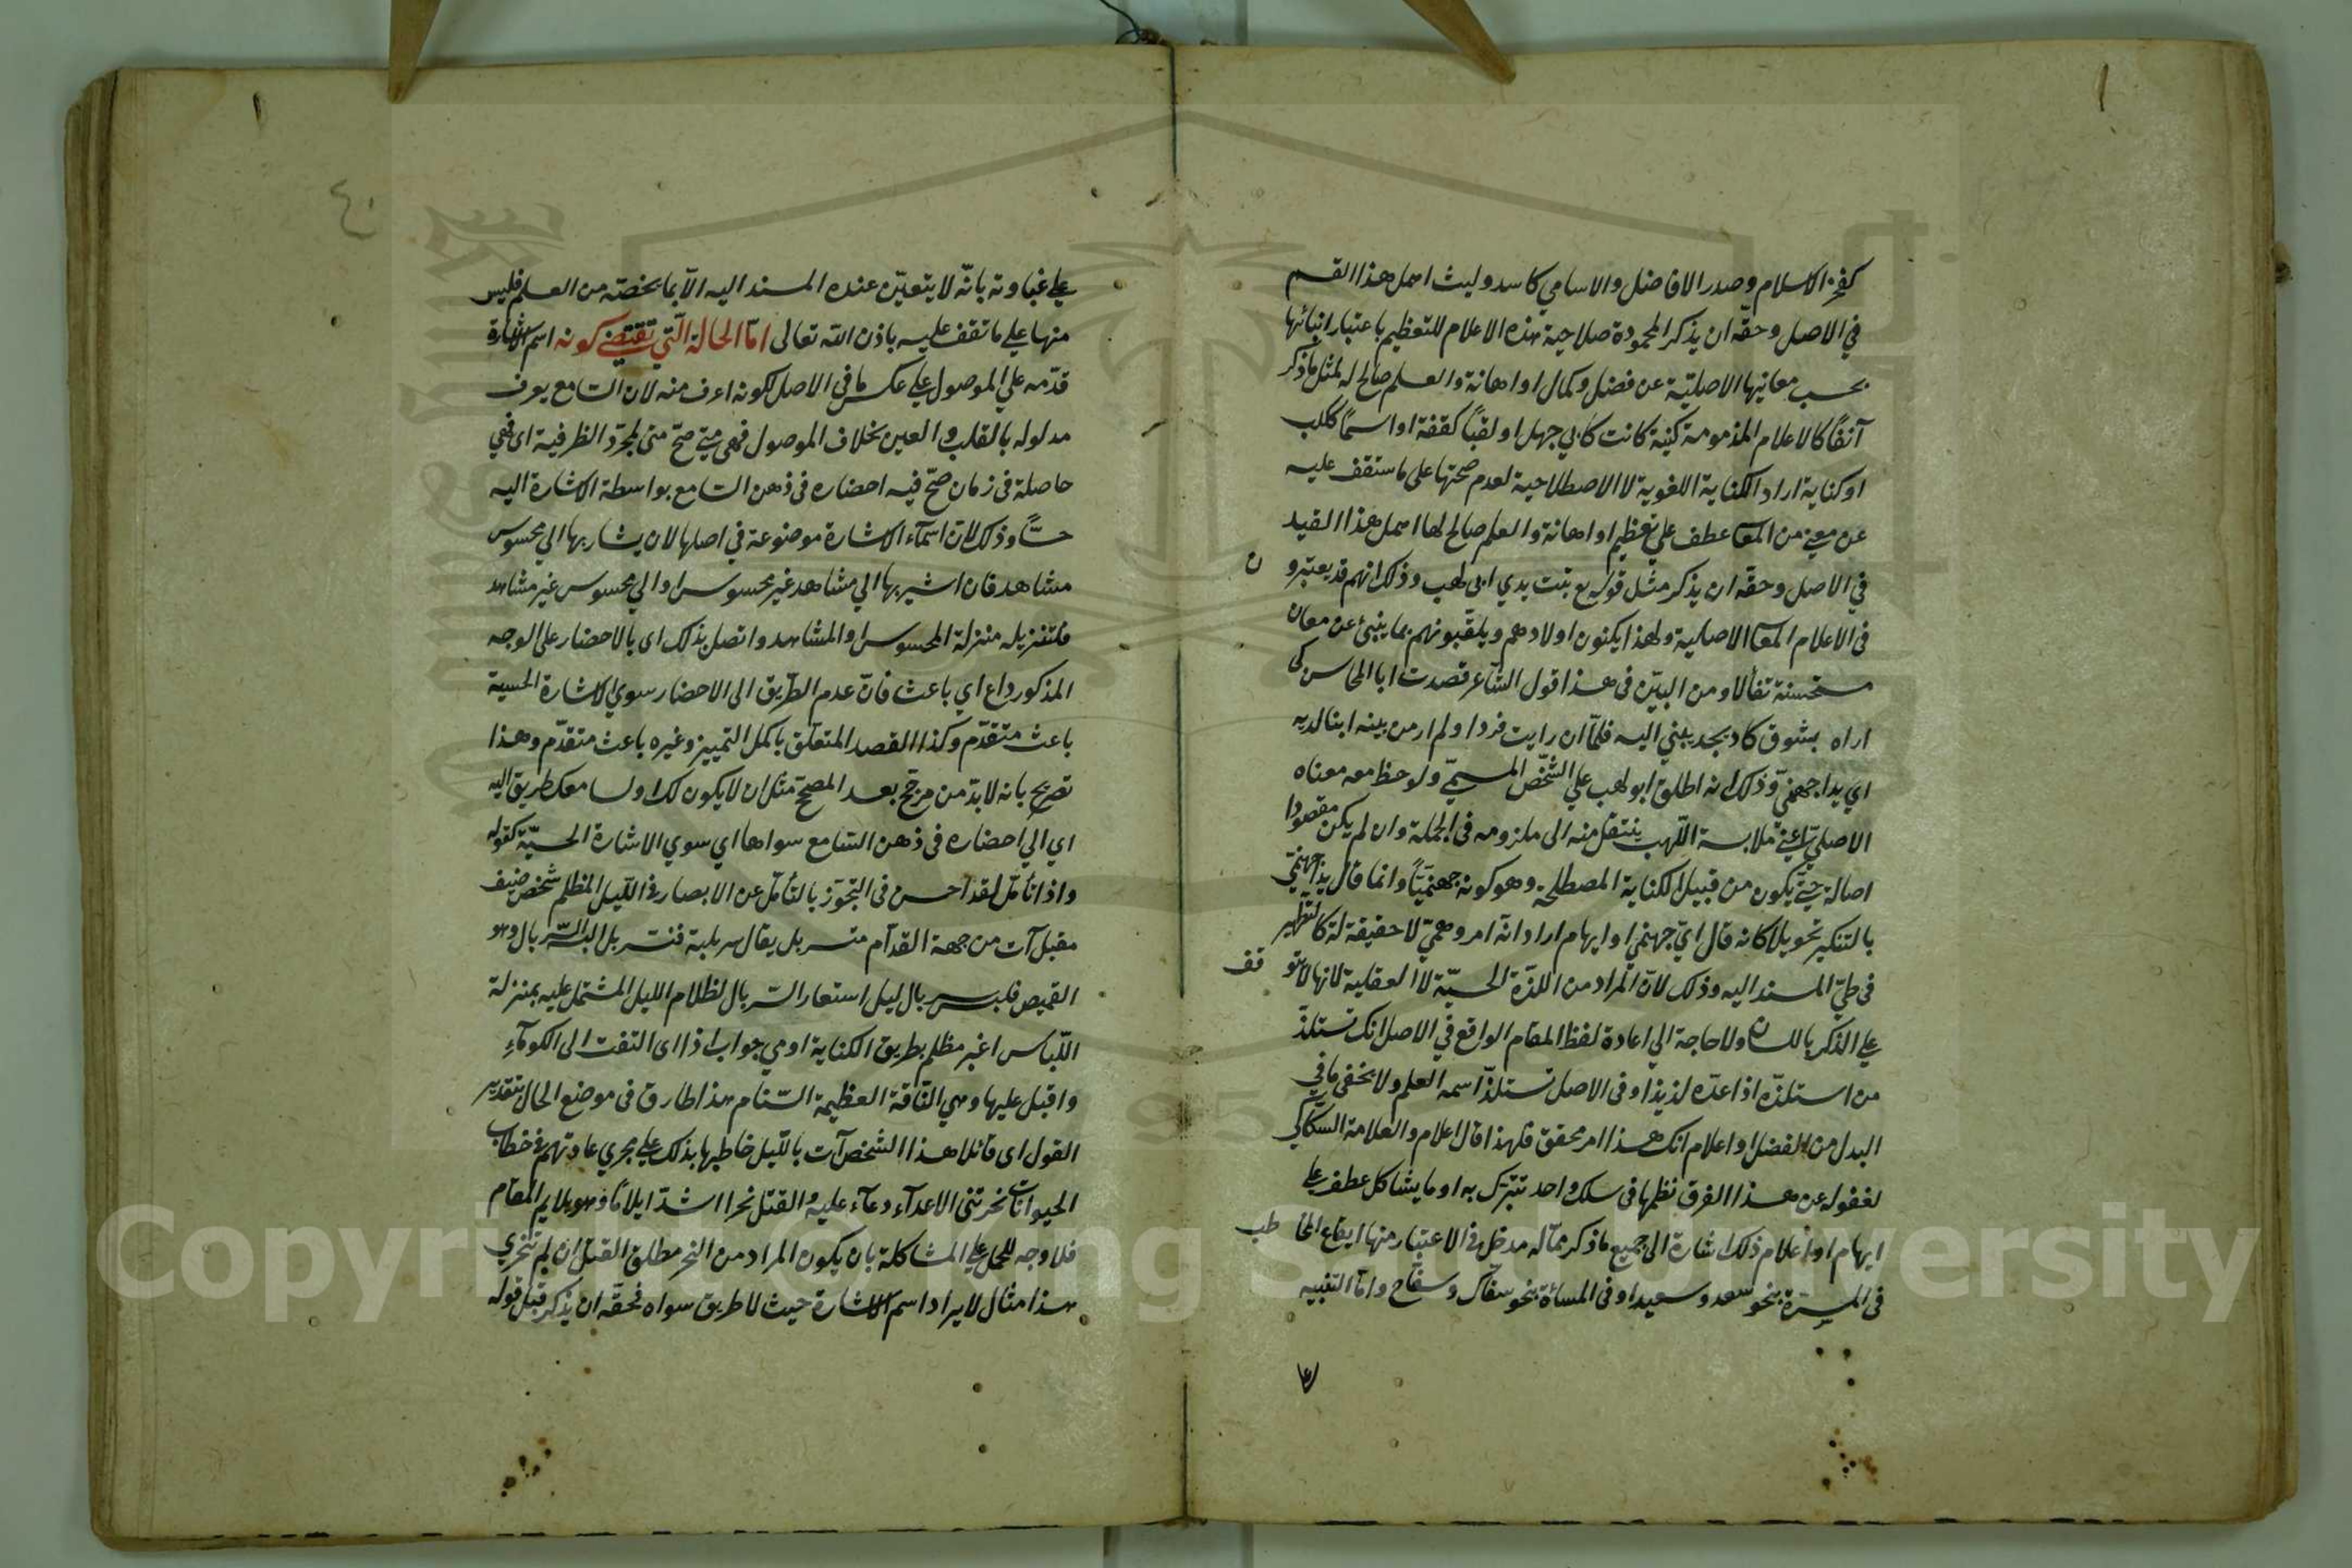 كفخر الاسلام وصدر الافاضل والاسامي كاسد وليث اهمل هذا القسم
في الاصل وحقه ان يذكر المحمودة صلاحية هذه الاعلام للتعظيم باعتبار انبائها
بحسب معانيها الاصلية عن فضل وكمال او اهانة والعلم صالح له لمثل ما ذكر
آنفًا كالاعلام المذمومة كنية كانت كابي جهل او لقبًا كقفة او اسمًا ككلب
او كناية اراد الكناية اللغوية لا الاصطلاحية لعدم صحتها على ما ستقف عليه
عن معنى من المعا عطف على تعظيم او اهانة والعلم صالح لها اهمل هذا القيد
في الاصل وحقه ان يذكر مثل قوله تع تبت يدي ابي لهب وذلك انهم قد يعتبرو ن
في الاعلام المعا الاصلية ولهذا يكنون اولادهم ويلقبونهم بما ينبئ عن معان
مستحسنة تفألا ومن البيّن في هذا قول الشاعر قصدت ابا المحاسن كى
اراه بشوق كاد يجذبني اليه فلمّا ان رايت فردا ولم ار من بينه ابنا لديه
اي يدا جهنميّ وذلك انه اطلق ابو لهب علي الشخص المسمّى ولوحظ معه معناه
الاصلي اعني ملابسة اللهب ينتقل منه الى ملزومه في الجملة وان لم يكن مقصودا
اصالة حتى يكون من قبيل الكناية المصطلحة وهو كونه جهنميًّا وانما قال يدا جهنميّ
بالتنكير تحويلا كانه قال ايّ جهنمي او ايهام اراد انه امر وهميّ لا حقيقة له كالتطهير
في طيّ المسند اليه وذلك لانّ المراد من اللذة الحسيّة لا العقلية لانها لا تتو قف
على الذكر باللسان ولا حاجة الي اعادة لفظ المقام الواقع في الاصل انك تستلذّ
من استلذّه اذا عدّه لذيذا وفي الاصل تستلذّ اسمه العلم ولا يخفى ما في
البدل من الفضل او اعلام انك هذا امر محقق فلهذا قال اعلام والعلامة السكاكي
لغفوله عن هذا الفرق نظمها في سلك واحد تتبرك به او ما يشاكل عطف على
ايهام او اعلام ذلك اشارة الى جميع ما ذكر ممّا له مدخل في الاعتبار منها ايقاع المخا طب
في المسرة بنحو سعد وسعيد او في المساءة بنحو سفاك وسفّاح وامّا التنبيه
على غباوته بانّه لا يتعيّن عنده المسند اليه الا بما يخصّه من العلم فليس
منها على ما تقف عليه باذن الله تعالى امّا الحالة الّتي تقتضي كونه اسم الاشارة
قدّمه علي الموصول على عكس ما في الاصل لكونه اعرف منه لان السامع يعرف
مدلوله بالقلب والعين بخلاف الموصول فهى متي صحّ متى لمجرّد الظرفية اى فهي
حاصلة في زمان صحّ فيه احضاره في ذهن السامع بواسطة الاشارة اليه
حسًّا وذلك لان اسمآء الاشارة موضوعة في اصلها لان يشار بها الي محسوس
مشاهد فان اشير بها الي مشاهد غير محسوس او الي محسوس غير مشاهد
فلتنزيله منزلة المحسوس او المشاهد واتصل بذلك اى بالاحضار على الوجه
المذكور داع اي باعث فانّ عدم الطريق الى الاحضار سوي الاشارة الحسية
باعث متقدّم وكذا القصد المتعلق باكمل التمييز وغيره باعث متقدّم وهذا
تصريح بانه لا بدّ من مرجّح بعد المصحّح مثل ان لا يكون لك او لسامعك طريق اليه
اي الي احضاره في ذهن السامع سواها اي سوي الاشارة الحسيّة كقوله
واذا تأمّل لقد احسن في التجوّز بالتأمّل عن الابصار في اللّيل المظلم شخص ضيف
مقبل آت من جهة القدّام متسربل يقال سربلته فتسربل البسه السّربال وهو
القميص فلبس سربال ليل استعار السّربال لظلام الليل المشتمل عليه بمنزلة
اللّباس اغبر مظلم بطريق الكناية اومى جواب اذا اى التفت الى الكومآء
واقبل عليها وهي النّاقة العظيمة السّنام هذا طارق في موضع الحال بتقدير
القول اى قائلا هذا الشخص آت بالليل خاطبها بذلك على مجري عادتهم في خطاب
الحيوانات نحرتنى الاعدآء دعآء عليه والقتل نحرا اشدّ ايلامًا وهو يلايم المقام
فلا وجه للحمل على المشاكلة بان يكون المراد من النحر مطلق القتل ان لم تنحري
هذا مثال لايراد اسم الاشارة حيث لا طريق سواه فحقّه ان يذكر قبل قوله
Copyright © King Saud University